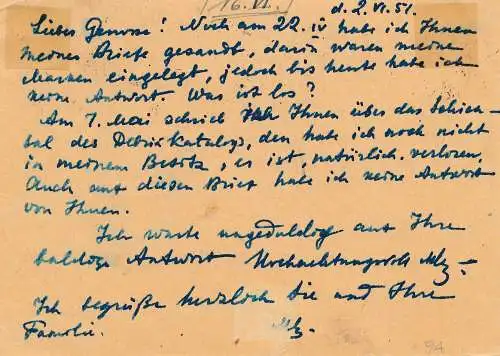 16. VI.
d. 2. VI. 51.
Lieber Genosse! Noch am 22. IV habe ich Ihnen
meinen Brief gesandt, darin waren meine
Marken eingelegt, jedoch bis heute habe ich
keine Antwort. Was ist los?
Am 7. Mai schrieb ich Ihnen über das Schick-
sal des Katalogs, den habe ich noch nicht
in meinem Besitz, es ist, natürlich, verloren,
Auch auf diesen Brief habe ich keine Antwort
von Ihnen.
Ich warte ungeduldig auf Ihre
baldige Antwort Hochachtungsvoll
Ich begrüße herzlich Sie und Ihre
Familie.